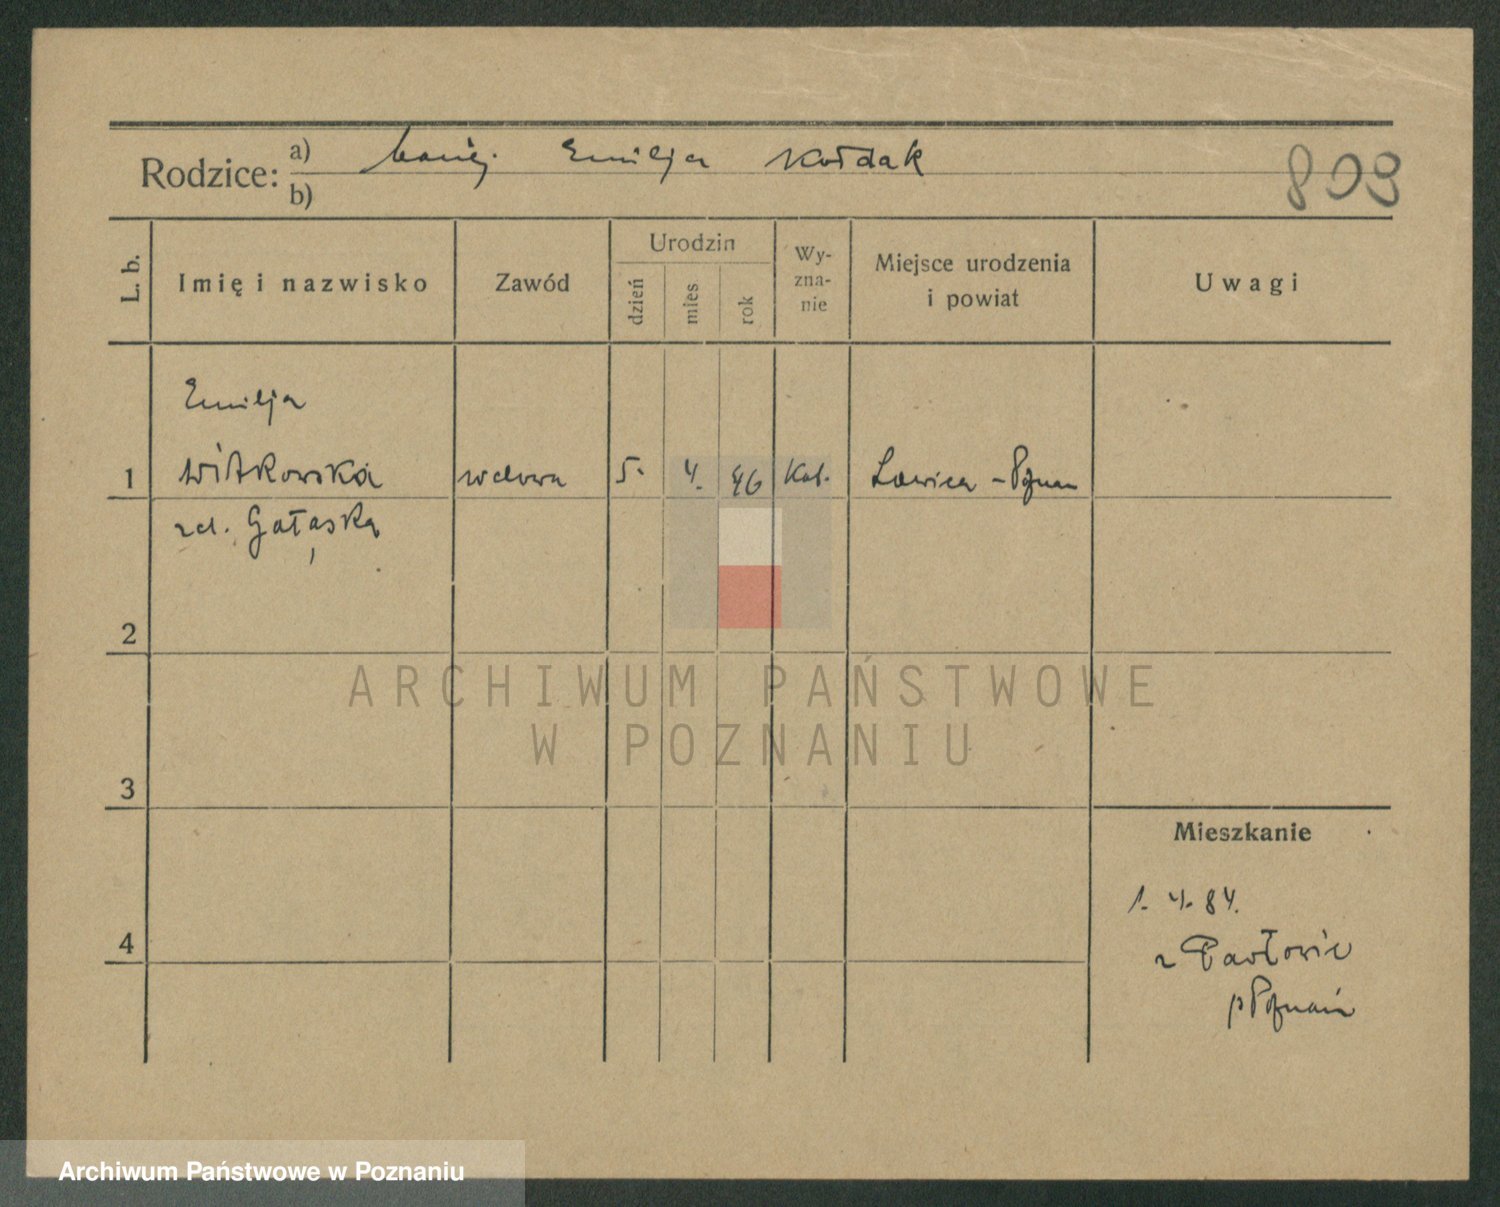 Rodzice: a) Emilja Kołdak
b)
803
L. b.
Imię i nazwisko
Zawód
Urodzin
dzień
mies
rok
Wy-
zna-
nie
Miejsce urodzenia
i powiat
Uwagi
Emilja
1 Witkowska wdowa 5. 4. 46 Kat. Ławica - Poznań
zd. Gałąska
2
ARCHIWUM PAŃSTWOWE
W POZNANIU
3
Mieszkanie
1. 4. 84.
4
z Pawłowic
p Poznań
Archiwum Państwowe w Poznaniu